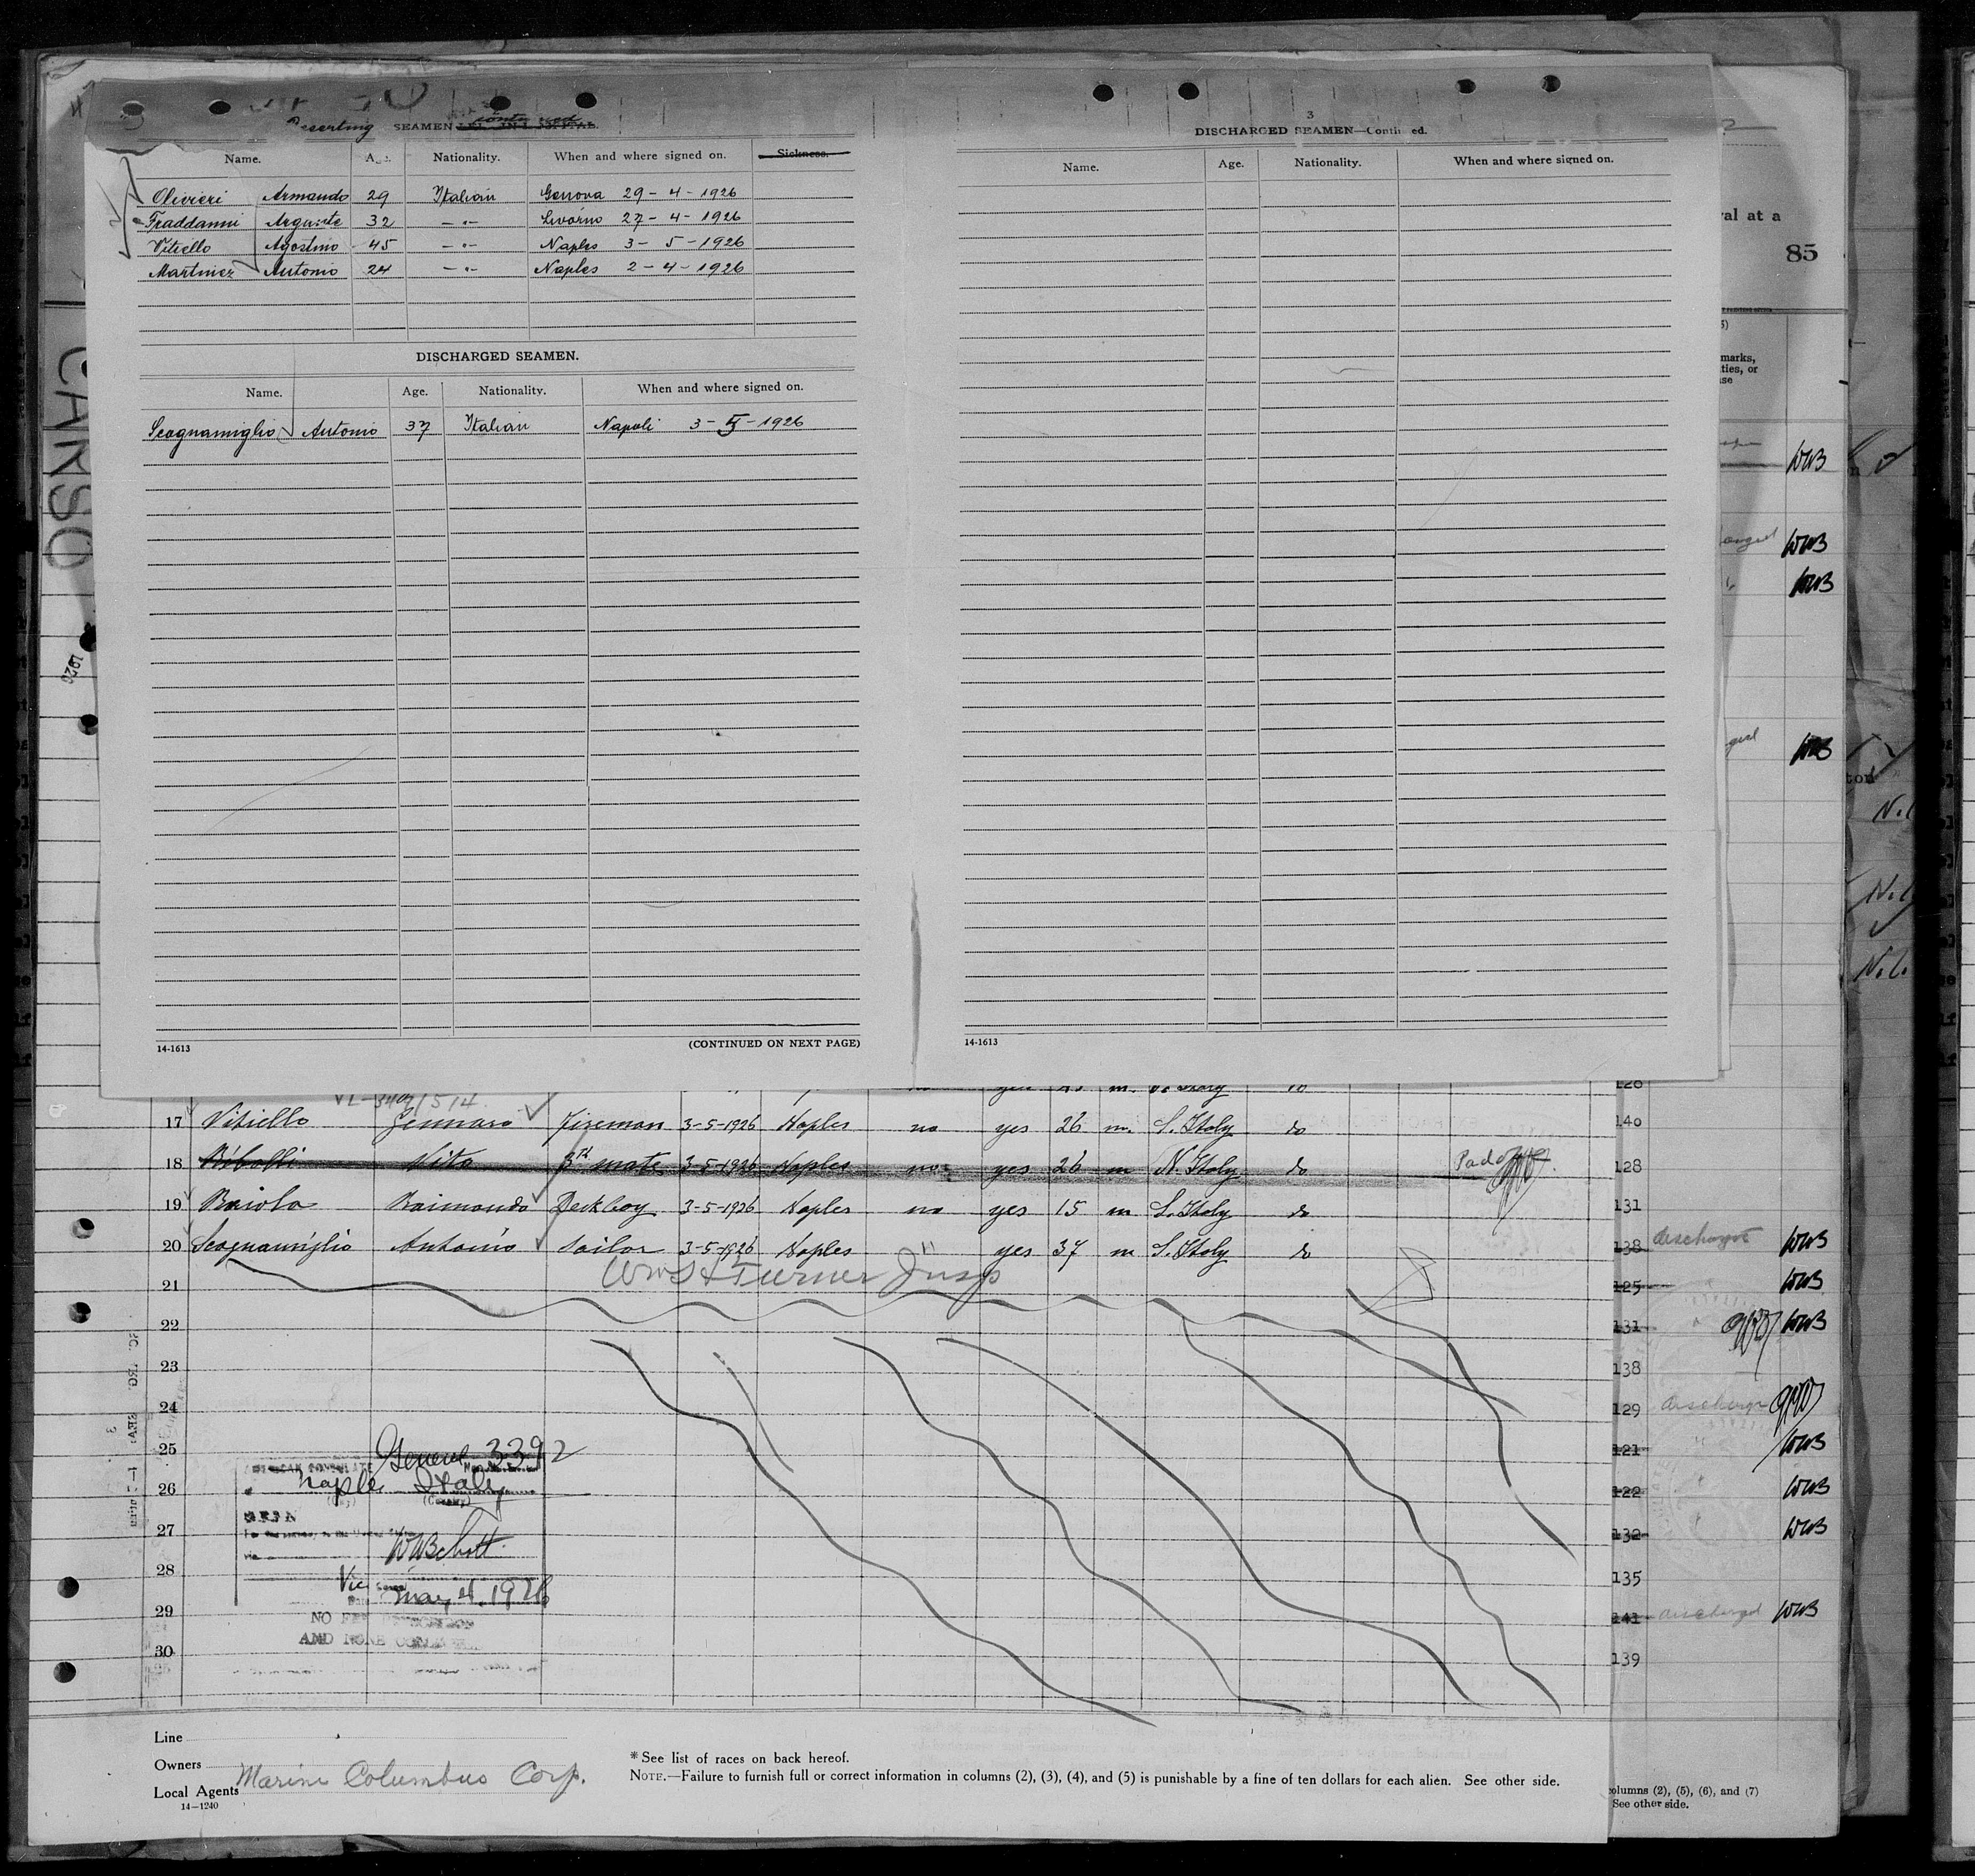 Deserting SEAMEN continued
Name. Age. Nationality. When and where signed on. Sickness.
Olivieri Armando 29 Italian Genova 29-4-1926
Fraddanni 32 -"- Livorno 27-4-1926
Vitiello Agostino 45 -"- Naples 3-5-1926
Martinez Antonio 24 -"- Naples 2-4-1926
DISCHARGED SEAMEN.
Name. Age. Nationality. When and where signed on.
Scognamiglio Antonio 37 Italian Napoli 3-5-1926
14-1613 (CONTINUED ON NEXT PAGE)
3
DISCHARGED SEAMEN—Continued.
Name. Age. Nationality. When and where signed on.
14-1613
val at a
85
marks,
ties, or
se
WWB
WWB
WWB
WWB
CANSO
17 Vitiello Gennaro Fireman 3-5-1926 Naples no yes 26 m. S. Italy do 140
18 Ribolli Vito 3rd mate 3-5-1926 Naples no yes 26 m N. Italy do 128
19 Raiola Raimondo Deckboy 3-5-1926 Naples no yes 15 m S. Italy do 131
20 Scognamiglio Antonio Sailor 3-5-1926 Naples " yes 37 m S. Italy do 138 discharged WWB
Turner Insp
21 125 WWB
22 131 WWB
23 138
24 129 discharge
25 121 WWB
26 122 WWB
27 132 WWB
28 135
29 141 discharged WWB
30 139
3392
Naples Italy
(City) (Country)
SEEN
Vice
May 4. 1926
NO FEE
AND NONE
Line
Owners
Local Agents Marine Columbus Corp.
14—1240
*See list of races on back hereof.
NOTE.—Failure to furnish full or correct information in columns (2), (3), (4), and (5) is punishable by a fine of ten dollars for each alien. See other side.
columns (2), (5), (6), and (7)
See other side.